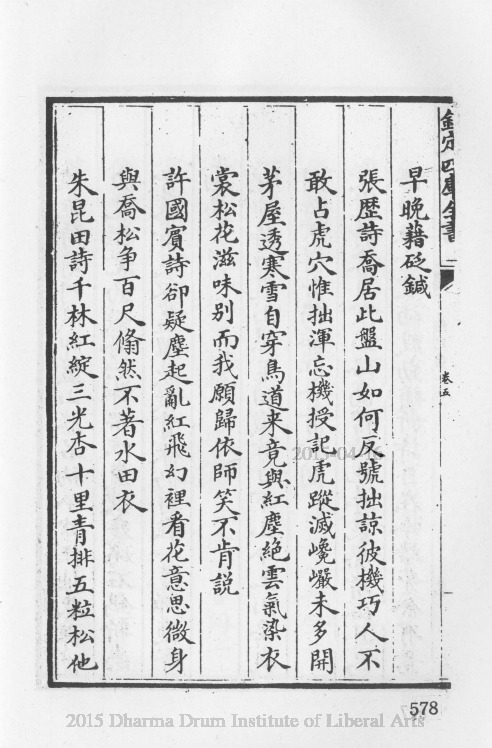 欽定四庫全書
卷五
早晚藉砭鍼
張歴詩喬居此盤山如何反號拙諒彼機巧人不
敢占虎穴惟拙渾忘機授記虎蹤滅巉巖未多開
茅屋透寒雪自穿鳥道来竟與紅塵絶雲氣染衣
裳松花滋味别而我願歸依師笑不肯説
許國賓詩卻疑塵起亂紅飛幻裡看花意思微身
與喬松争百尺翛然不著水田衣
朱昆田詩千林紅綻三光杏十里青排五粒松他
578
2015 Dharma Drum Institute of Liberal Arts